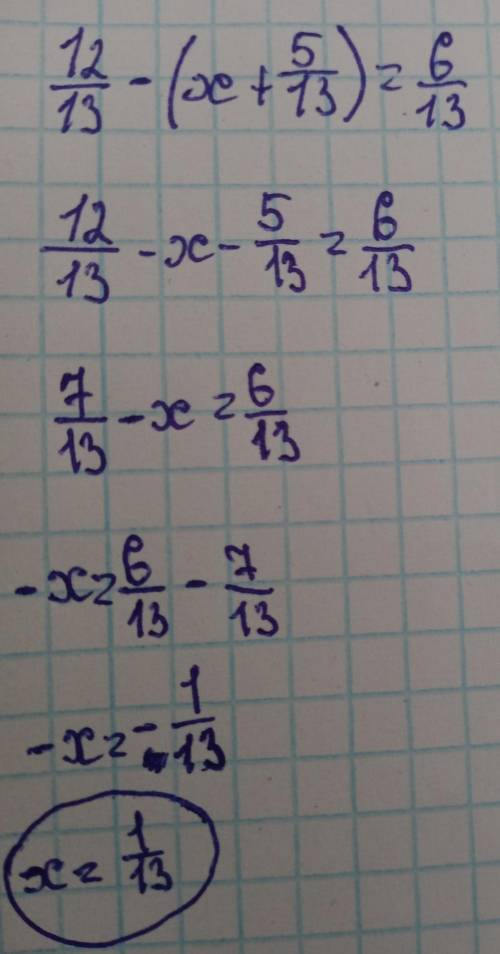 12/13 - (x + 5/13) = 6/13
12/13 - x - 5/13 = 6/13
7/13 - x = 6/13
-x = 6/13 - 7/13
-x = - 1/13
x = 1/13